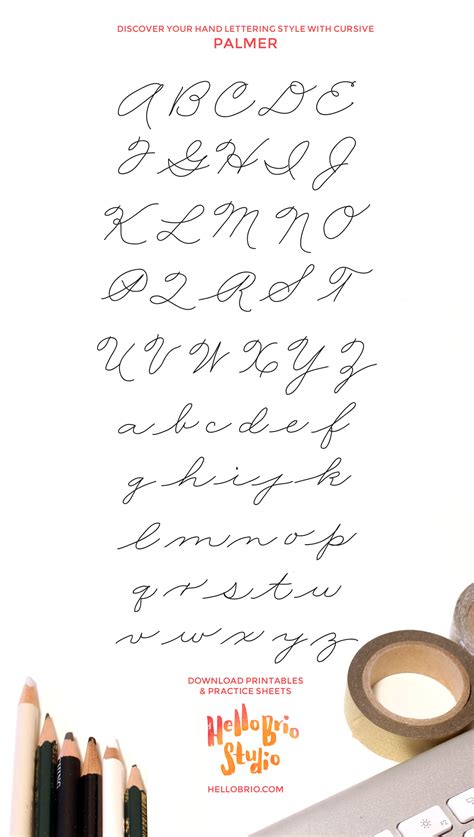 DISCOVER YOUR HAND LETTERING STYLE WITH CURSIVE
PALMER
A B C D E
F G H I J
K L M N O
P Q R S T
U V W X Y Z
a b c d e f
g h i j k
l m n o p
q r s t u
v w x y z
DOWNLOAD PRINTABLES
& PRACTICE SHEETS
Hello Brio
Studio
HELLOBRIO.COM